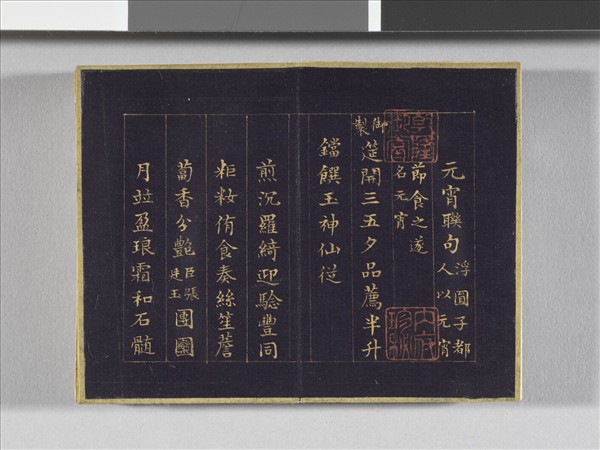 元宵聯句 浮圓子都人以元宵
節食之遂名元宵
御製筵開三五夕品薦半升
鐺饌玉神仙從
煎沉羅綺迎騐豐同
粔籹侑食奏絲笙薝
蔔香分艷臣張廷玉團團
月竝盈琅霜和石髓